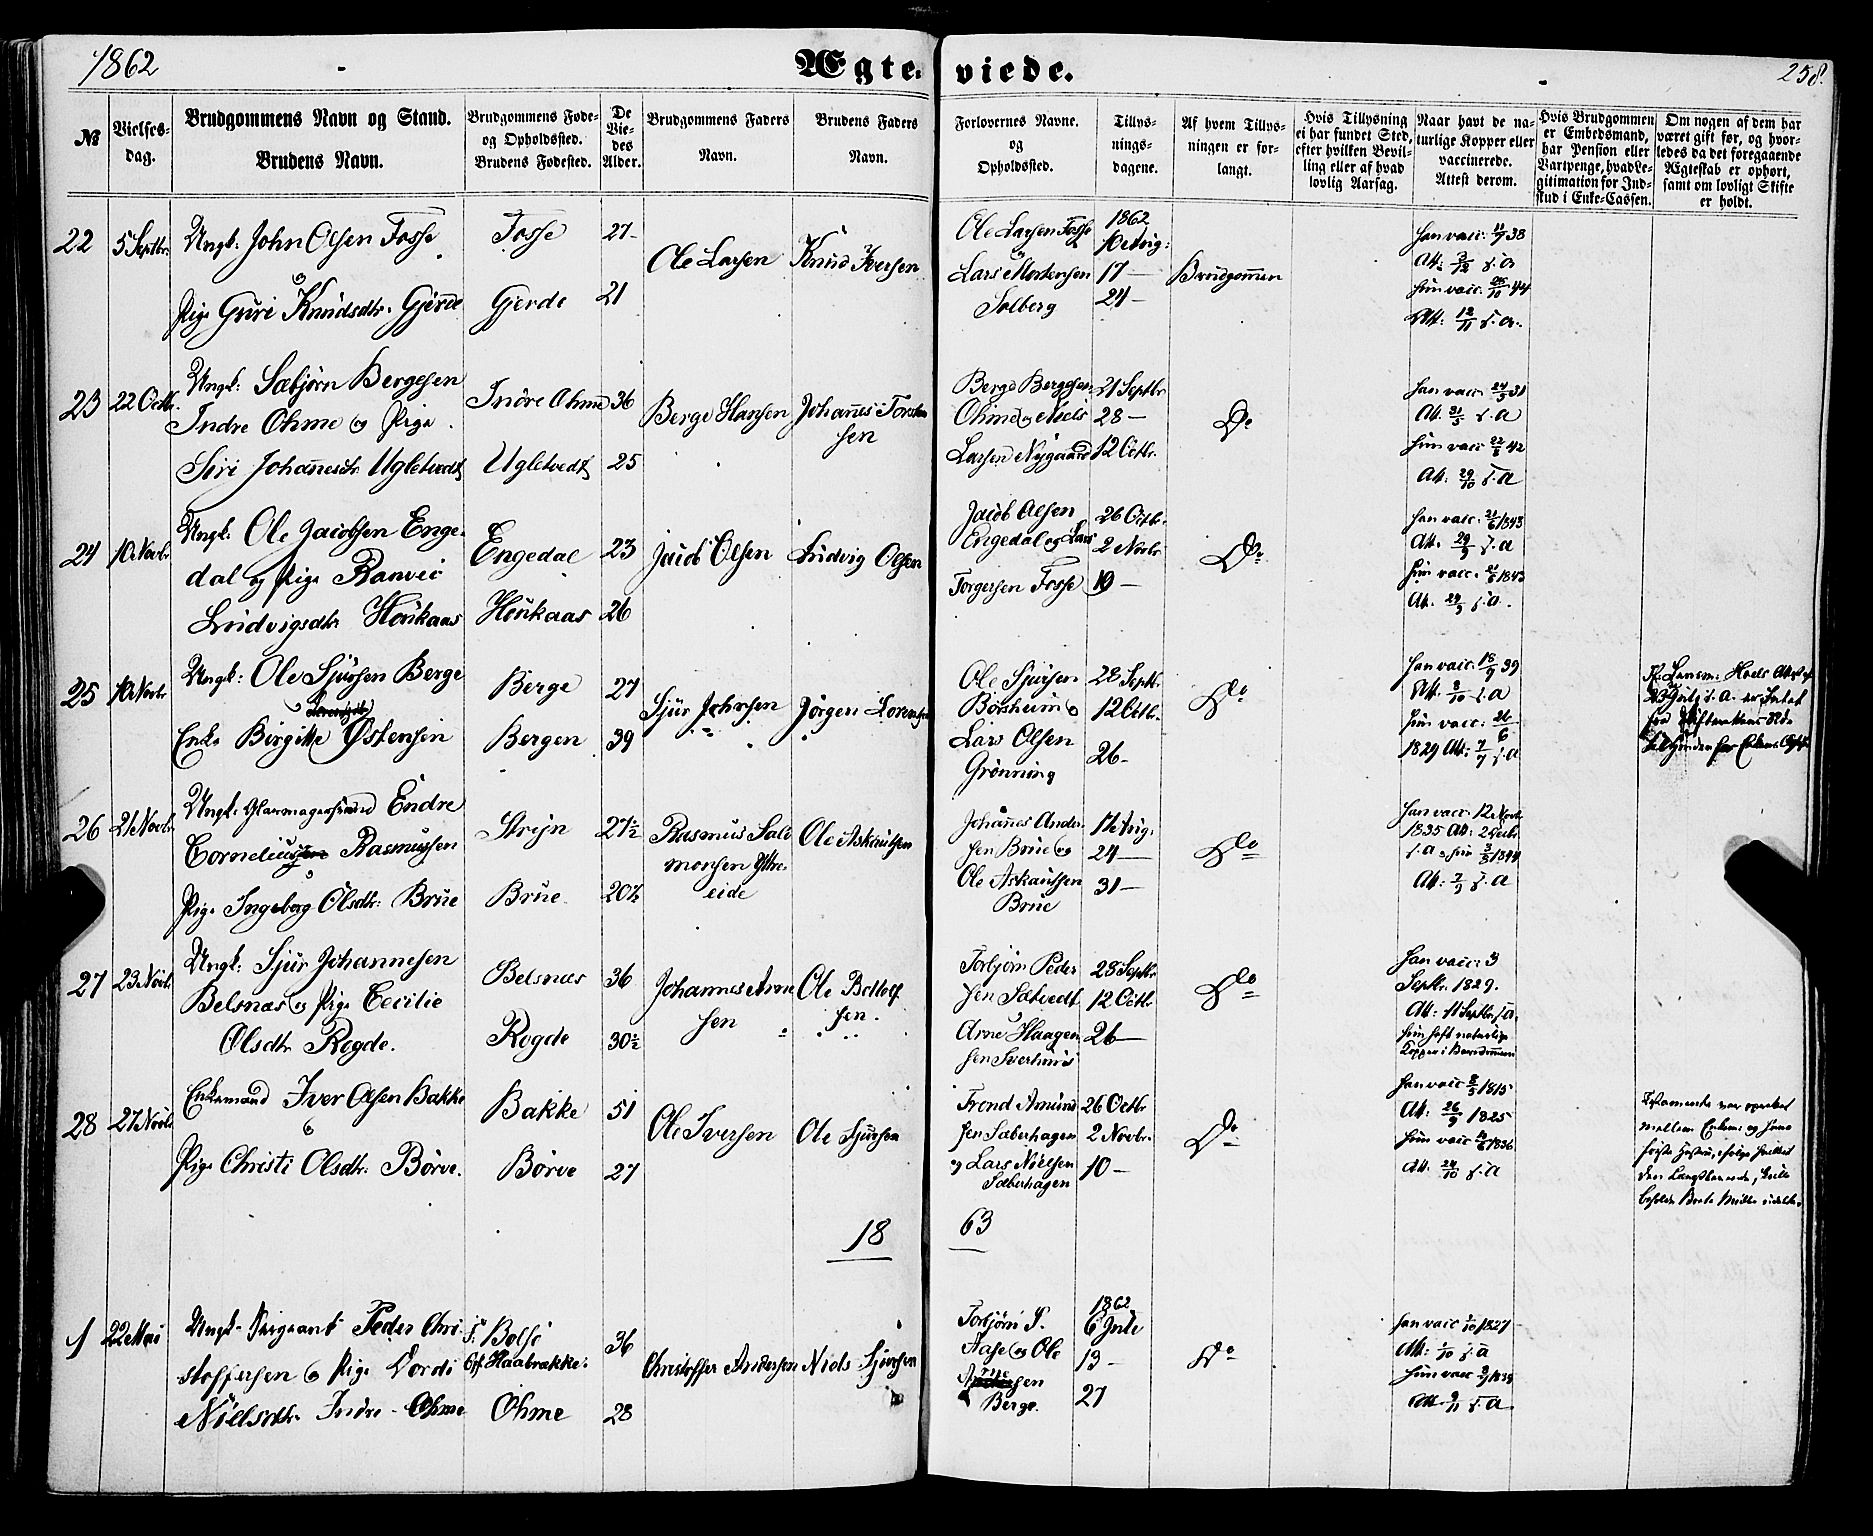 1862
Ægteviede.
258.
№
Vielses-
dag.
Brudgommens Navn og Stand.
Brudens Navn.
Brudgommens Føde-
og Opholdssted.
Brudens Fødested.
De
Vie-
des
Alder.
Brudgommens Faders
Navn.
Brudens Faders
Navn.
Forlovernes Navne.
og
Opholdssted.
Tillys-
nings-
dagene.
Af hvem Tillys-
ningen er for-
langt.
Hvis Tillysning
ei har fundet Sted,
efter hvilken Bevil-
ling eller af hvad
lovlig Aarsag.
Naar havt de na-
turlige Kopper eller
vaccinerede.
Attest derom.
Hvis Brudgommen
er Embedsmand,
har Pension eller
Vartpenge, hvad Le-
gitimation for Ind-
skud i Enke-Cassen.
Om nogen af dem har
været gift før, og hvor-
ledes da det foregaaende
Ægteskab er ophørt,
samt om lovligt Skifte
er holdt.
22
5 Septbr.
Ungk. John Olsen Fosse
Pige Guri Knudsdtr. Gjerde
Fosse
Gjerde
27
21
Ole Larsen
Knud Iversen
Ole Larsen Fosse
Lars Mortensen
Solberg
1862
10 Aug:
17 —
24 —
Brudgommen
Han vacc. 38
Hun vacc. 44
23
22 Octbr.
Ungk. Sæbjørn Bergesen
Indre Ohme og Pige
Siri Johannesdtr Ugletvedt
Indre Ohme
Ugletvedt
36
25
Berge Hansen
Johannes Torsten
sen
Berge Bergesen
Ohme og Niels
Larsen Nygaard
21 Septbr
28 —
12 Octbr.
Do
Han vacc. 24/5 31
Att. 31/5 s. a
Hun vacc. 42
Att. 29/10 s. a
24
10 Novbr
Ungk. Ole Jacobsen Enge-
dal og Pige Ranvei
Ludvigsdtr Houkaas
Engedal
Houkaas
23
26
Jacob Olsen
Ludvig Olsen
Jacob Olsen
Engedal og Lars
Torgersen Fosse
26 Octbr.
2 Novbr
10 —
Do
Han vacc. 21/6 1843
Att. 29/9 s. a
Hun vacc. 21/6 1843
Att. 29/9 s. a.
25
10 Novbr
Ungk: Ole Sjursen Berge
Enke Birgitte Østensin
Berge
Bergen
27
39
Sjur Johnsen
Jørgen Lorentsen
Ole Sjursen
Børsheim og
Lars Olsen
Grønning
28 Septbr.
12 Octbr.
26 —
Do
Han vacc. 18/9 39
Att. 8/10 s. a
Hun vacc. 26/6
1829 Att. 7/7 s. a
26
21 Novbr.
Ungk. Glarmagersvend Endre
Rasmussen
Pige Ingeborg Olsdtr. Brue
Stryn
Brue
27½
20½
Rasmus Salo
monsen Ytre-
eide
Ole Askautsen
Johannes Ander
sen Brue og
Ole Askautsen
Brue
17 Aug.
24 —
31 —
Do
Han vacc. 12 Novbr
1835 Att.
s. a. Hun 1844
Att. 7/9 s. a
27
23 Novbr.
Ungk: Sjur Johannesen
Belsnæs og Pige Cecilie
Olsdtr Rogde.
Belsnæs
Rogde
36
30½
Johannes Arne
sen
Ole Bottolf
sen.
Torbjørn Peder
sen Sætvedt
Arne Haagen
sen
28 Septbr
12 Octbr.
26 —
Do
Han vacc. 3
Septbr. 1829.
Att: 11 Septbr s. a.
Hun haft naturlige
Kopper i Barndommen
28
27 Novbr
Enkemand Iver Olsen Bakke
Pige Christi Olsdtr. Børve.
Bakke
Børve
51
27
Ole Iversen
Ole Sjursen
Trond Amund
sen Sæberhagen
og Lars Nielsen
Sæberhagen
26 Octbr
2 Novbr.
10 —
Do
Han vacc 1815
Att: 26/9 1825
Hun vacc 1836
Att. 24/10 s. a
Testamente var oprettet
mellem Enkem: og hans
første Hustru, ifølge hvilket
den Længstlevende skulde
beholde Boets Midler udeelte.
18
63
1
22 Mai
Ungk. Sergeant Peder Chri-
stoffersen og Pige Dordi
Nielsdtr. Indre Ohme
F. Bolse
Opf. Haabrække.
Ohme
36
28
Christoffer Andersen
Niels Sjursen
Torbjørn S.
Aase og Ole
Berge.
1862
6 Juli
13 —
27
Do
Han vacc 1827
Att: 1/10 s. a
Hun vacc
Att. 9/11 s. a.